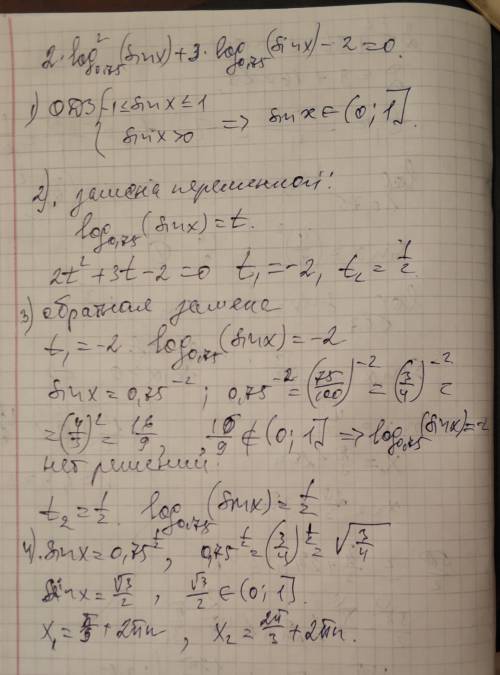 2·log²₀,₇₅(sinx)+3·log₀,₇₅(sinx)-2=0.
1) ОДЗ { -1≤sinx≤1
sinx>0 => sinx∈(0;1]
2). замена переменной:
log₀,₇₅(sinx)=t.
2t²+3t-2=0 t₁=-2, t₂=1/2.
3) обратная замена
t₁=-2 log₀,₇₅(sinx)=-2
sinx=0,75⁻² ; 0,75⁻²=(75/100)⁻²=(3/4)⁻²=
=(4/3)²=16/9, 16/9∉(0;1] => log₀,₇₅(sinx)=-2
нет решений
t₂=1/2. log₀,₇₅(sinx)=1/2
4). sinx=0,75^(1/2), 0,75^(1/2)=(3/4)^(1/2)=√(3/4)
sinx=√3/2, √3/2∈(0;1].
x₁=π/3+2πn, x₂=2π/3+2πn.